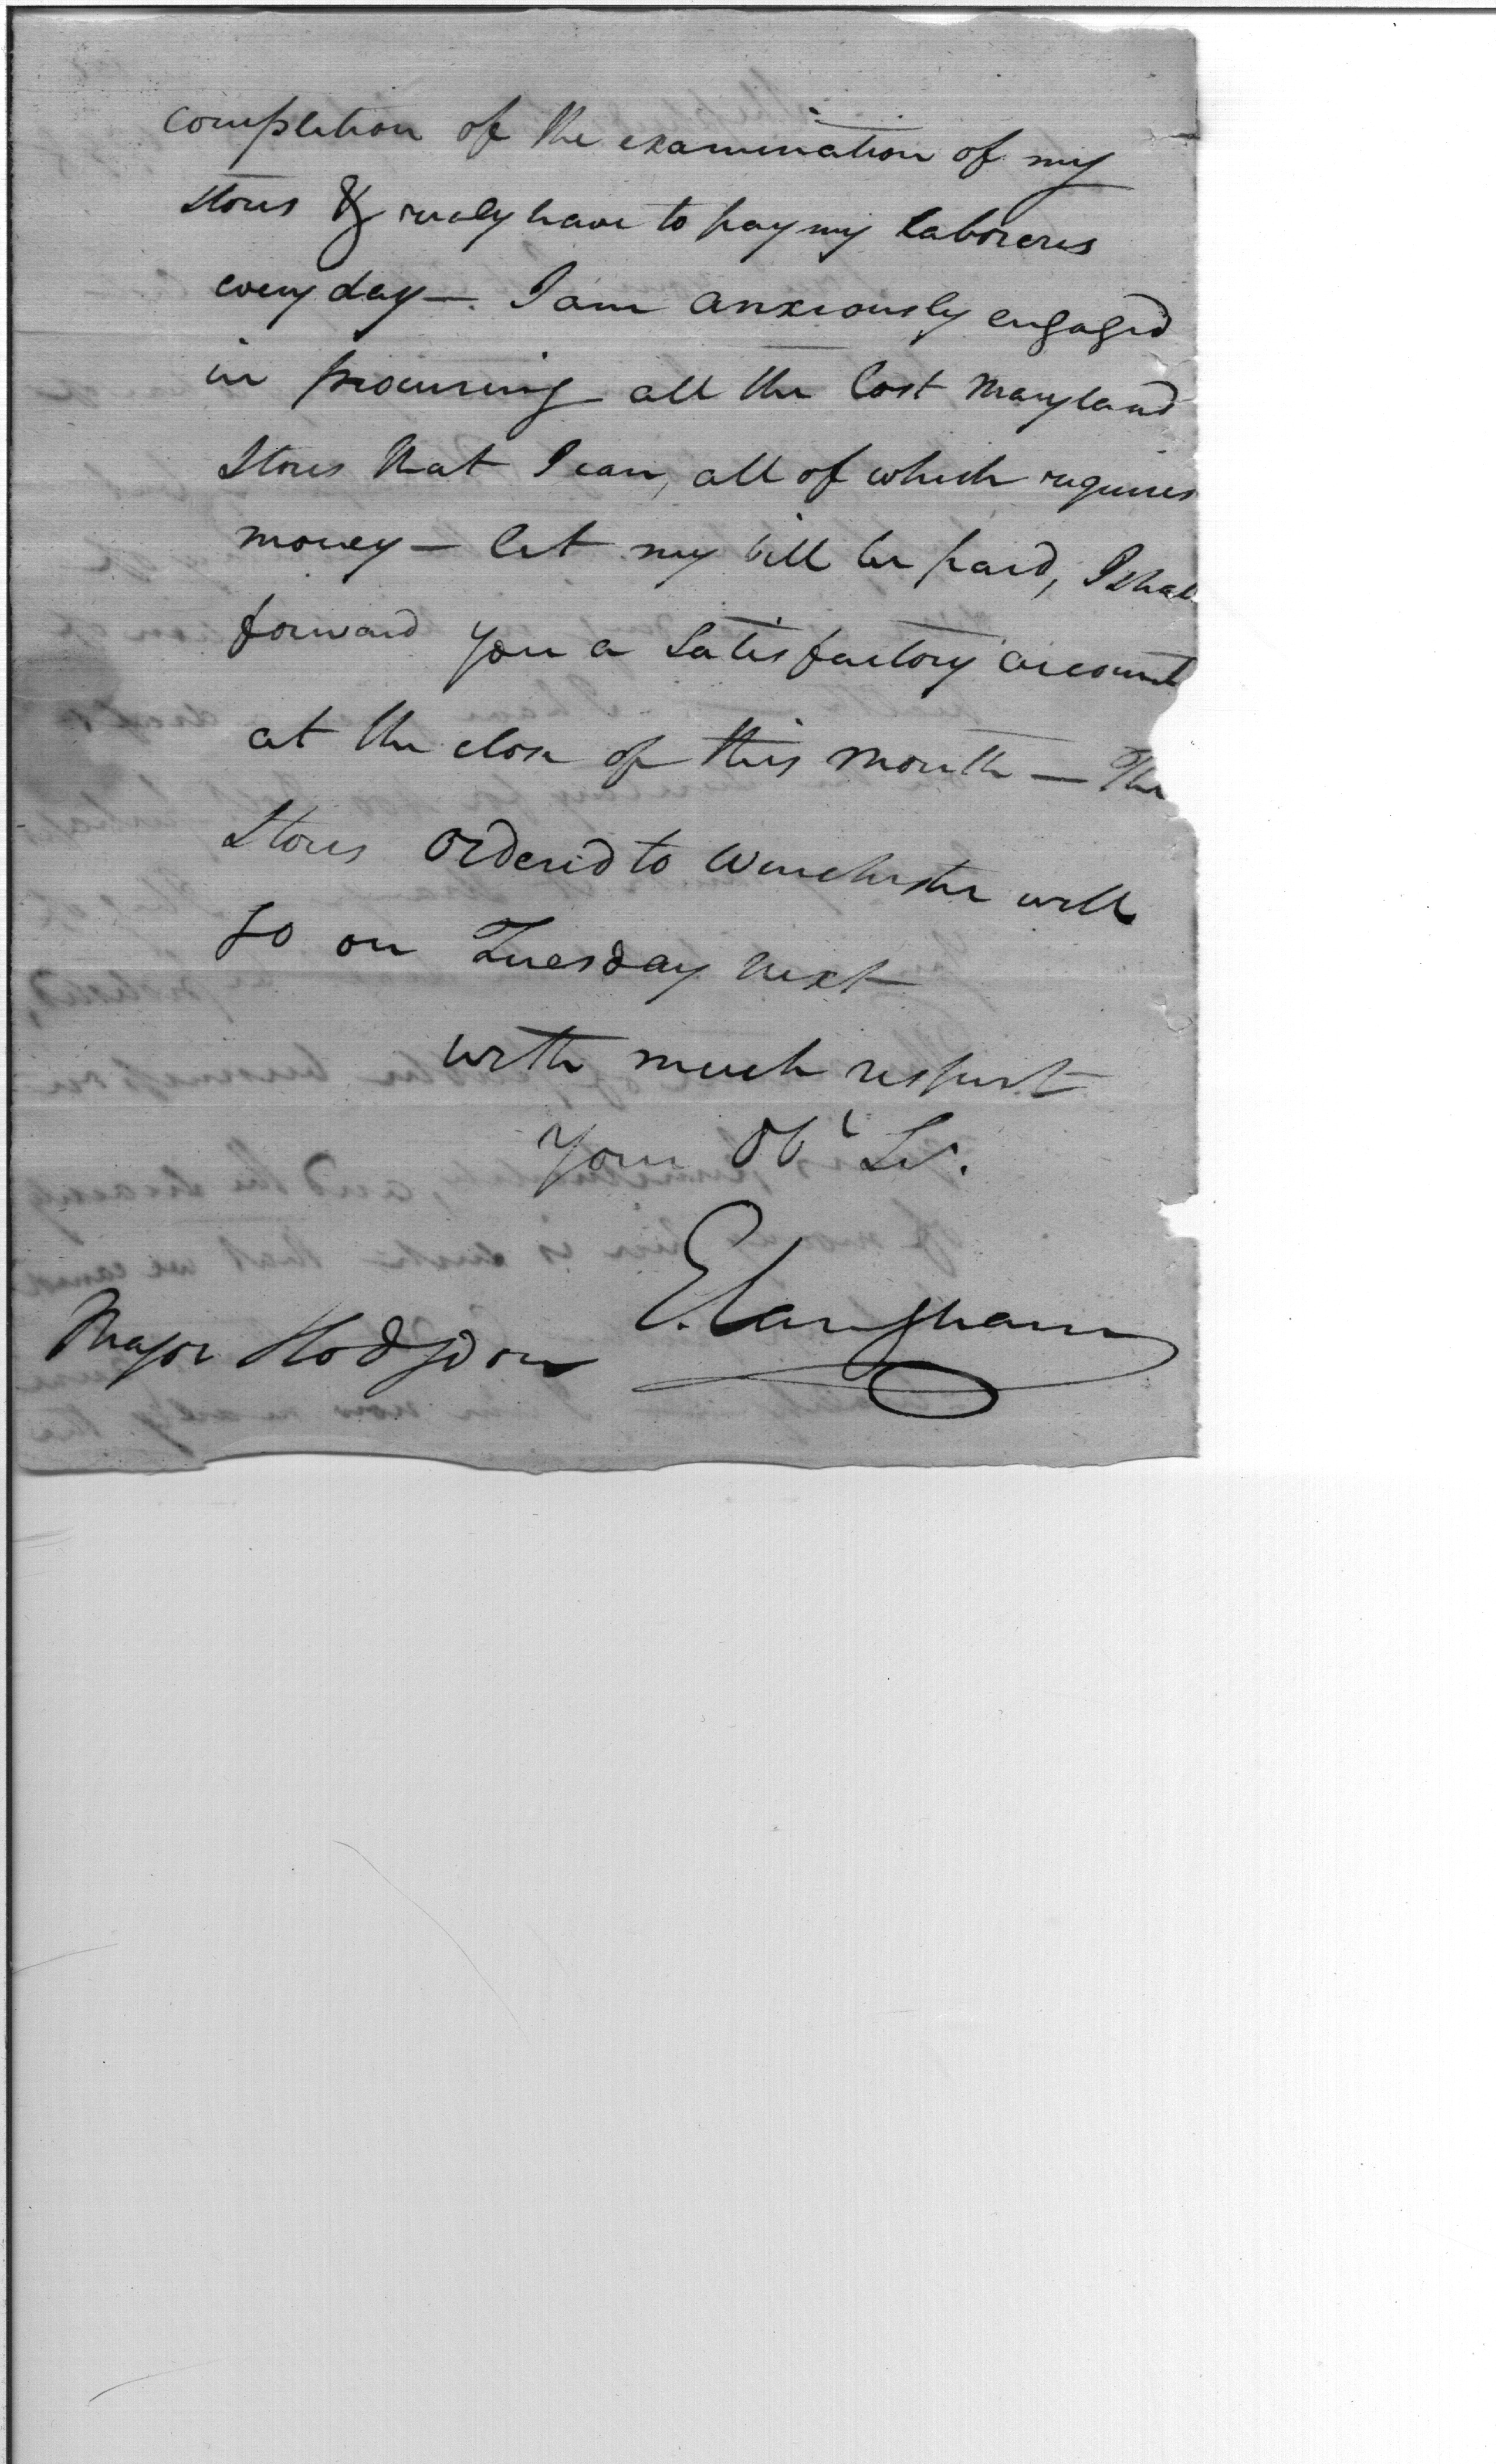 completion of the examination of my
stores & really have to pay my laborers
every day — I am anxiously engaged
in procuring all the lost Maryland
Stores that I can, all of which requires
money — let my bill be paid, I shall
forward you a Satisfactory account
at the close of this month — The
Stores ordered to Winchester will
go on Tuesday next
with much respect
Your Obt Sv.
E. Langham
Major Hodgdon